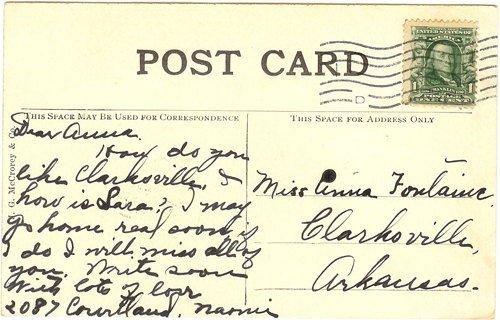 POST CARD
UNITED STATES OF AMERICA
FRANKLIN
POSTAGE
ONE CENT
D
THIS SPACE MAY BE USED FOR CORRESPONDENCE
THIS SPACE FOR ADDRESS ONLY
J. G. McCrorey & Co.
Dear Anna.
How do you
like Clarksville, &
how is Sara? I may
go home real soon, if
I do I will miss all of
you. Write soon
With lots of love
2087 Courtland, Naomi
Miss Anna Fontaine.
Clarksville,
Arkansas.